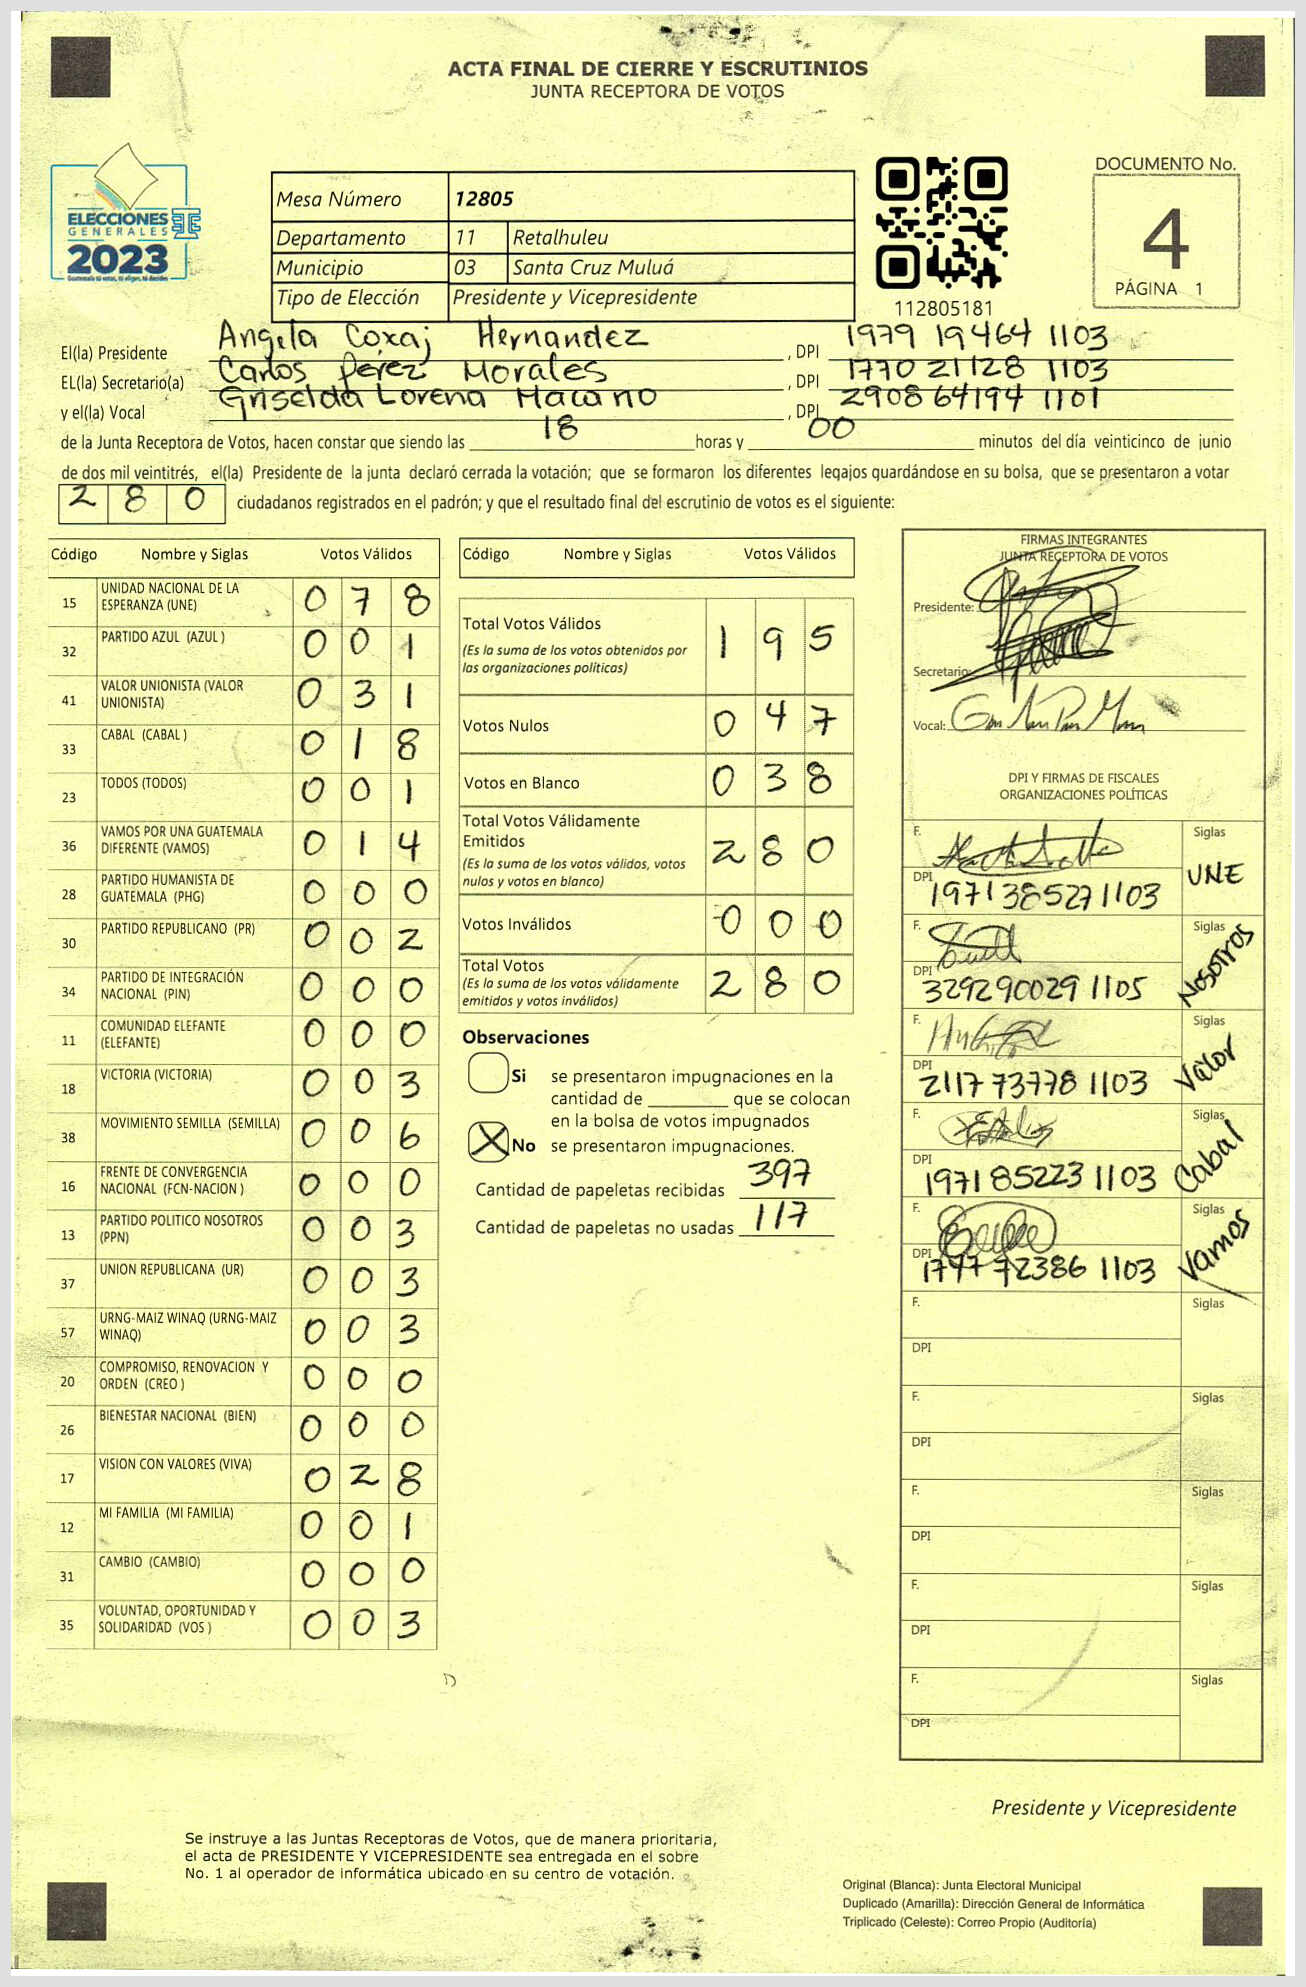 ACTA FINAL DE CIERRE Y ESCRUTINIOS
JUNTA RECEPTORA DE VOTOS
ELECCIONES
GENERALES
2023
Mesa Número 12805
Departamento 11 Retalhuleu
Municipio 03 Santa Cruz Muluá
Tipo de Elección Presidente y Vicepresidente
112805181
DOCUMENTO No.
4
PÁGINA 1
El(la) Presidente Angela Coxaj Hernandez , DPI 1979 19464 1103
EL(la) Secretario(a) Carlos Pérez Morales , DPI 1770 21128 1103
y el(la) Vocal Griselda Lorena , DPI 2908 64194 1101
de la Junta Receptora de Votos, hacen constar que siendo las 18 horas y 00 minutos del día veinticinco de junio
de dos mil veintitrés, el(la) Presidente de la junta declaró cerrada la votación; que se formaron los diferentes legajos guardándose en su bolsa, que se presentaron a votar
2 8 0 ciudadanos registrados en el padrón; y que el resultado final del escrutinio de votos es el siguiente:
Código Nombre y Siglas Votos Válidos
15 UNIDAD NACIONAL DE LA ESPERANZA (UNE) 0 7 8
32 PARTIDO AZUL (AZUL ) 0 0 1
41 VALOR UNIONISTA (VALOR UNIONISTA) 0 3 1
33 CABAL (CABAL ) 0 1 8
23 TODOS (TODOS) 0 0 1
36 VAMOS POR UNA GUATEMALA DIFERENTE (VAMOS) 0 1 4
28 PARTIDO HUMANISTA DE GUATEMALA (PHG) 0 0 0
30 PARTIDO REPUBLICANO (PR) 0 0 2
34 PARTIDO DE INTEGRACIÓN NACIONAL (PIN) 0 0 0
11 COMUNIDAD ELEFANTE (ELEFANTE) 0 0 0
18 VICTORIA (VICTORIA) 0 0 3
38 MOVIMIENTO SEMILLA (SEMILLA) 0 0 6
16 FRENTE DE CONVERGENCIA NACIONAL (FCN-NACION ) 0 0 0
13 PARTIDO POLITICO NOSOTROS (PPN) 0 0 3
37 UNION REPUBLICANA (UR) 0 0 3
57 URNG-MAIZ WINAQ (URNG-MAIZ WINAQ) 0 0 3
20 COMPROMISO, RENOVACION Y ORDEN (CREO ) 0 0 0
26 BIENESTAR NACIONAL (BIEN) 0 0 0
17 VISION CON VALORES (VIVA) 0 2 8
12 MI FAMILIA (MI FAMILIA) 0 0 1
31 CAMBIO (CAMBIO) 0 0 0
35 VOLUNTAD, OPORTUNIDAD Y SOLIDARIDAD (VOS ) 0 0 3
Código Nombre y Siglas Votos Válidos
Total Votos Válidos 1 9 5
(Es la suma de los votos obtenidos por
las organizaciones políticas)
Votos Nulos 0 4 7
Votos en Blanco 0 3 8
Total Votos Válidamente
Emitidos 2 8 0
(Es la suma de los votos válidos, votos
nulos y votos en blanco)
Votos Inválidos 0 0 0
Total Votos 2 8 0
(Es la suma de los votos válidamente
emitidos y votos inválidos)
Observaciones
Si se presentaron impugnaciones en la
cantidad de ________ que se colocan
en la bolsa de votos impugnados
X No se presentaron impugnaciones.
Cantidad de papeletas recibidas 397
Cantidad de papeletas no usadas 117
FIRMAS INTEGRANTES
JUNTA RECEPTORA DE VOTOS
Presidente:
Secretario:
Vocal:
DPI Y FIRMAS DE FISCALES
ORGANIZACIONES POLÍTICAS
F. Siglas
DPI 1971 38527 1103 UNE
F. Siglas
DPI 3292 90029 1105 Nosotros
F. Siglas
DPI 2117 73778 1103 Valor
F. Siglas
DPI 1971 85223 1103 Cabal
F. Siglas
DPI 1797 72386 1103 Vamos
F. Siglas
DPI
F. Siglas
DPI
F. Siglas
DPI
F. Siglas
DPI
F. Siglas
DPI
Presidente y Vicepresidente
Se instruye a las Juntas Receptoras de Votos, que de manera prioritaria,
el acta de PRESIDENTE Y VICEPRESIDENTE sea entregada en el sobre
No. 1 al operador de informática ubicado en su centro de votación.
Original (Blanca): Junta Electoral Municipal
Duplicado (Amarilla): Dirección General de Informática
Triplicado (Celeste): Correo Propio (Auditoría)